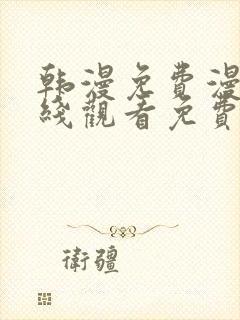 韩漫免費漫
綫觀看免費
衛疆